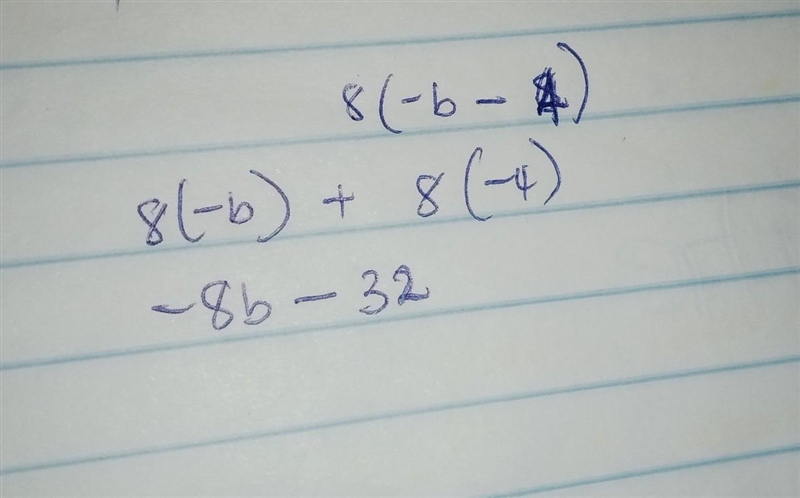 8(-b - 4)
8(-b) + 8(-4)
-8b - 32